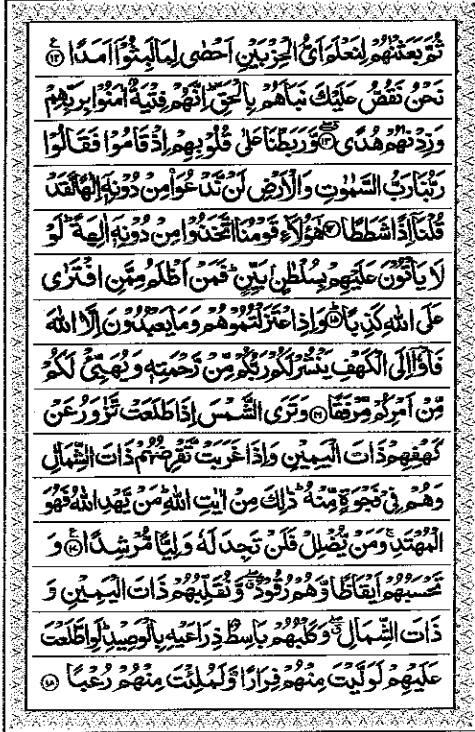 ثُمَّ بَعَثْنٰهُمْ لِنَعْلَمَ اَىُّ الْحِزْبَيْنِ اَحْصٰى لِمَا لَبِثُوْۤا اَمَدًا ۟ ١٢
نَحْنُ نَقُصُّ عَلَيْكَ نَبَاَهُمْ بِالْحَقِّ ؕ اِنَّهُمْ فِتْيَةٌ اٰمَنُوْا بِرَبِّهِمْ
وَزِدْنٰهُمْ هُدًى ١٣ وَّرَبَطْنَا عَلٰى قُلُوْبِهِمْ اِذْ قَامُوْا فَقَالُوْا
رَبُّنَا رَبُّ السَّمٰوٰتِ وَالْاَرْضِ لَنْ نَّدْعُوَا۟ مِنْ دُوْنِهٖۤ اِلٰهًا لَّقَدْ
قُلْنَاۤ اِذًا شَطَطًا ١٤ هٰۤؤُلَآءِ قَوْمُنَا اتَّخَذُوْا مِنْ دُوْنِهٖۤ اٰلِهَةً ؕ لَوْ
لَا يَاْتُوْنَ عَلَيْهِمْ بِسُلْطٰنٍۭ بَيِّنٍ ؕ فَمَنْ اَظْلَمُ مِمَّنِ افْتَرٰى
عَلَى اللّٰهِ كَذِبًا ١٥ وَاِذِ اعْتَزَلْتُمُوْهُمْ وَمَا يَعْبُدُوْنَ اِلَّا اللّٰهَ
فَاْوٗۤا اِلَى الْكَهْفِ يَنْشُرْ لَكُمْ رَبُّكُمْ مِّنْ رَّحْمَتِهٖ وَيُهَيِّئْ لَكُمْ
مِّنْ اَمْرِكُمْ مِّرْفَقًا ١٦ وَتَرَى الشَّمْسَ اِذَا طَلَعَتْ تَّزٰوَرُ عَنْ
كَهْفِهِمْ ذَاتَ الْيَمِيْنِ وَاِذَا غَرَبَتْ تَّقْرِضُهُمْ ذَاتَ الشِّمَالِ
وَهُمْ فِيْ فَجْوَةٍ مِّنْهُ ؕ ذٰلِكَ مِنْ اٰيٰتِ اللّٰهِ ؕ مَنْ يَّهْدِ اللّٰهُ فَهُوَ
الْمُهْتَدِ ۚ وَمَنْ يُّضْلِلْ فَلَنْ تَجِدَ لَهٗ وَلِيًّا مُّرْشِدًا ١٧ وَ
تَحْسَبُهُمْ اَيْقَاظًا وَّهُمْ رُقُوْدٌ ۖ وَّنُقَلِّبُهُمْ ذَاتَ الْيَمِيْنِ وَ
ذَاتَ الشِّمَالِ ۖ وَكَلْبُهُمْ بَاسِطٌ ذِرَاعَيْهِ بِالْوَصِيْدِ ؕ لَوِ اطَّلَعْتَ
عَلَيْهِمْ لَوَلَّيْتَ مِنْهُمْ فِرَارًا وَّلَمُلِئْتَ مِنْهُمْ رُعْبًا ١٨